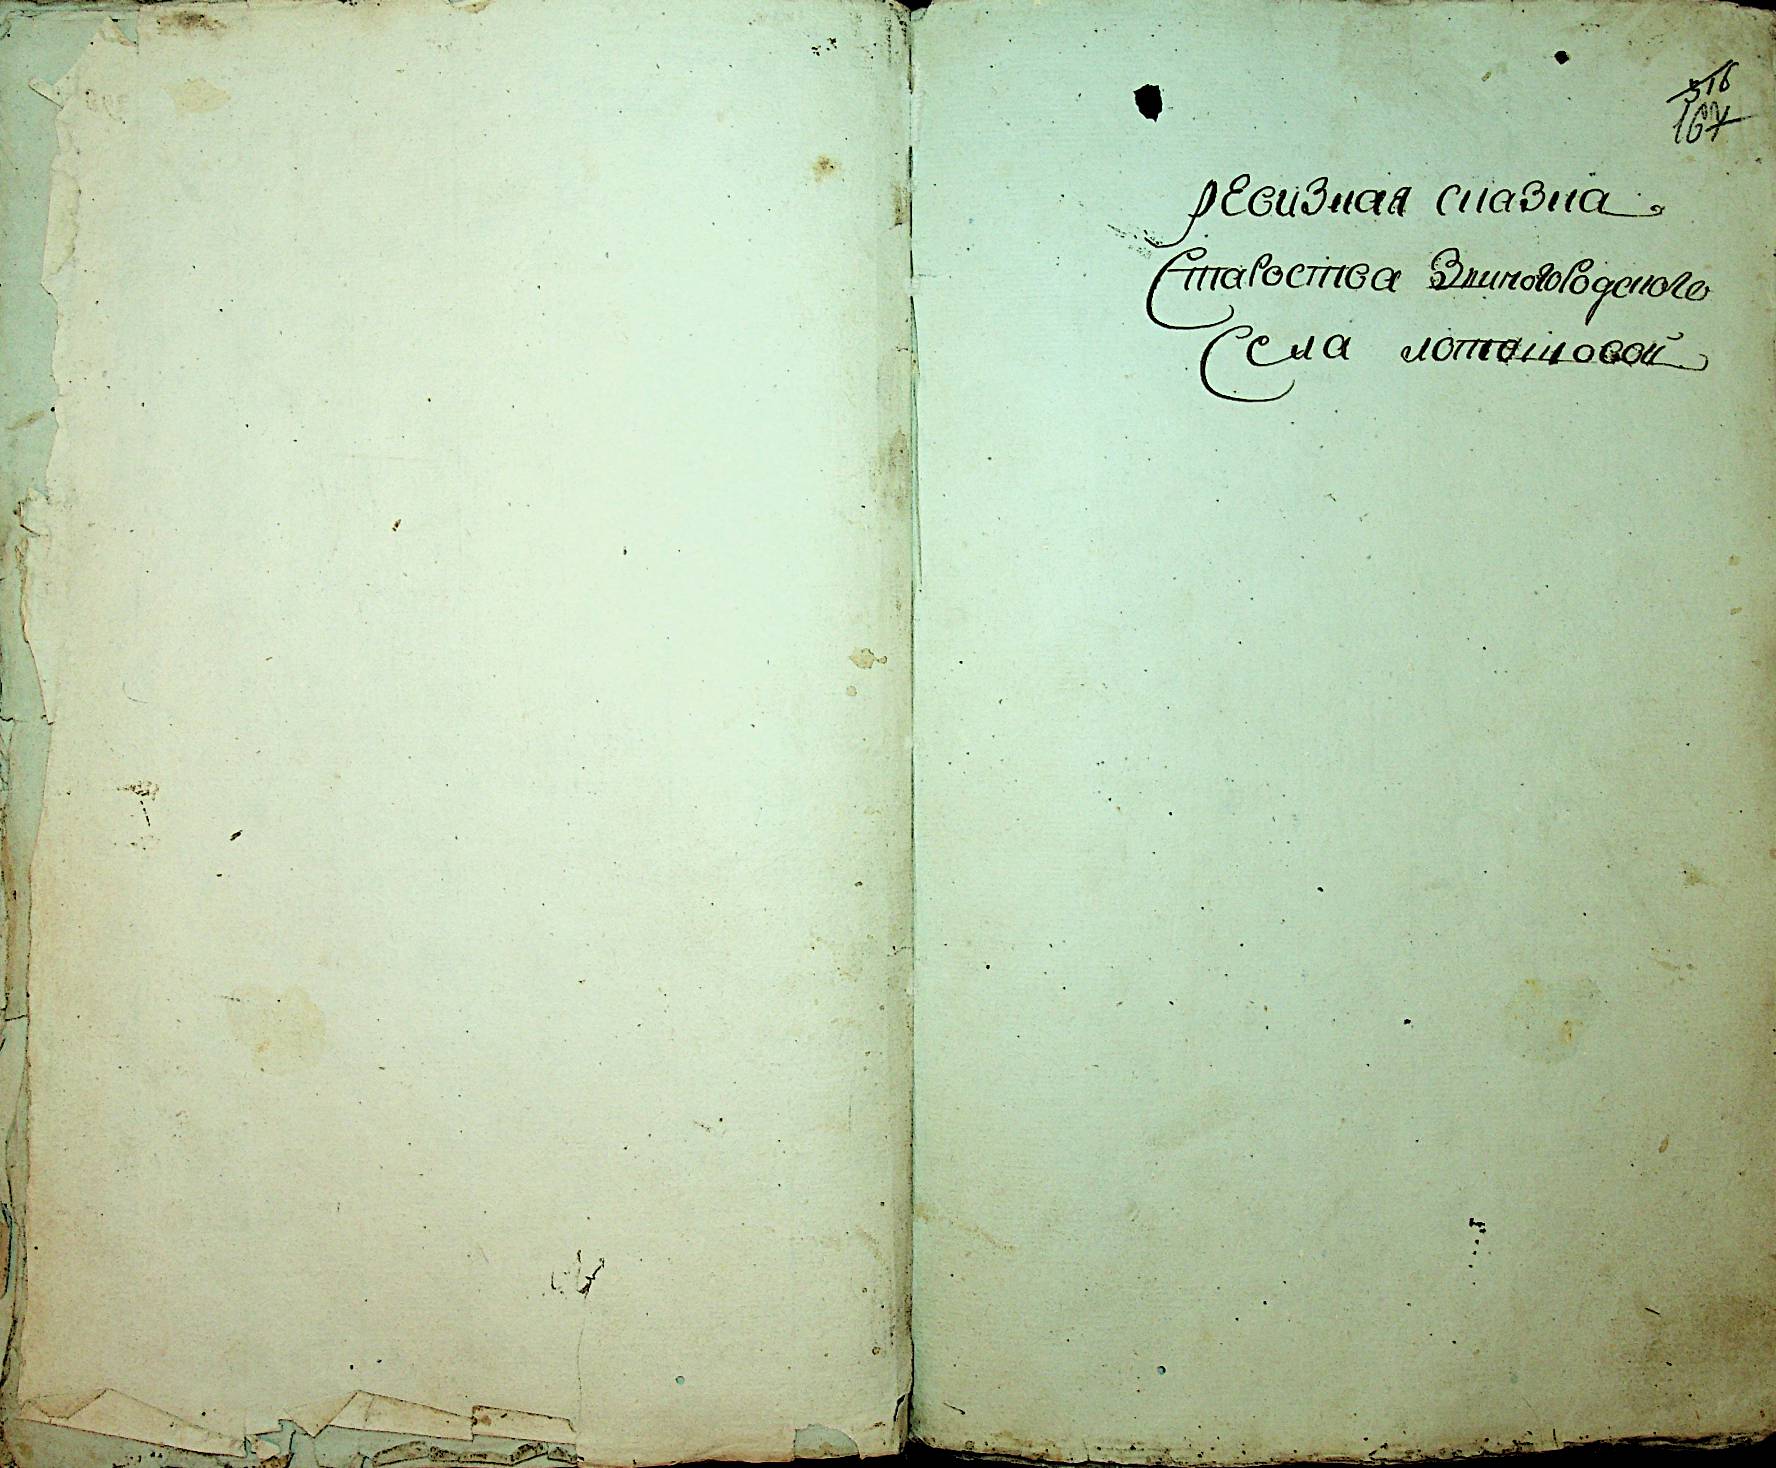 316
167
Ревизная сказка
Староства Звиногородского
Села лоташовой